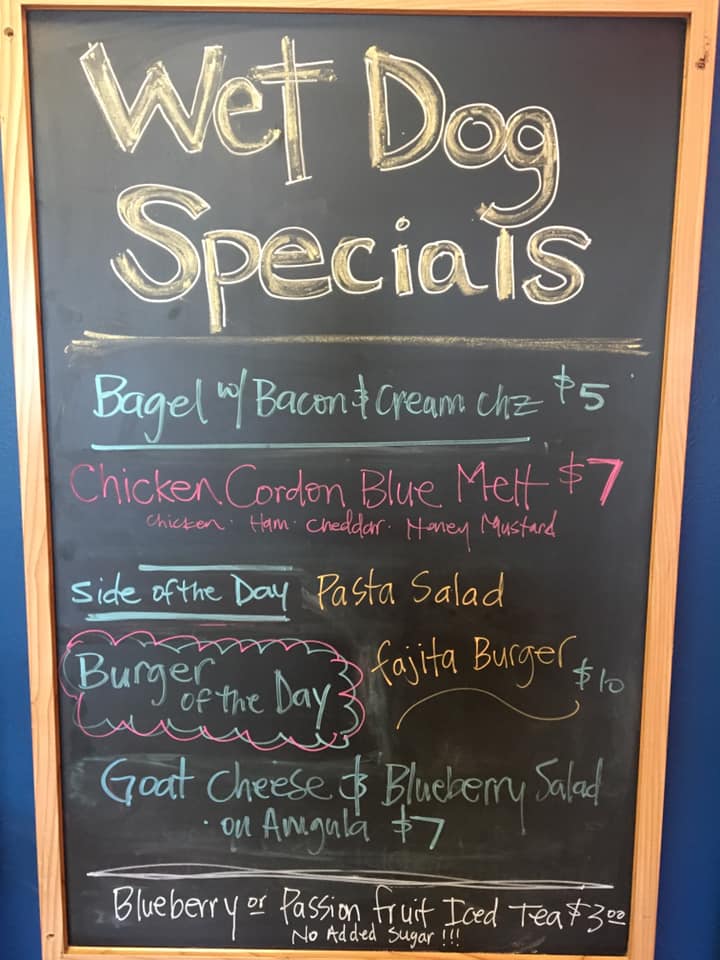 Wet Dog
Specials
Bagel w/ Bacon & Cream chz $5
Chicken Cordon Blue Melt $7
Chicken · Ham · Cheddar · Honey Mustard
Side of the Day Pasta Salad
Burger of the Day fajita Burger $10
Goat Cheese & Blueberry Salad
· on Arugula $7
Blueberry or Passion fruit Iced Tea $3.00
No Added Sugar!!!